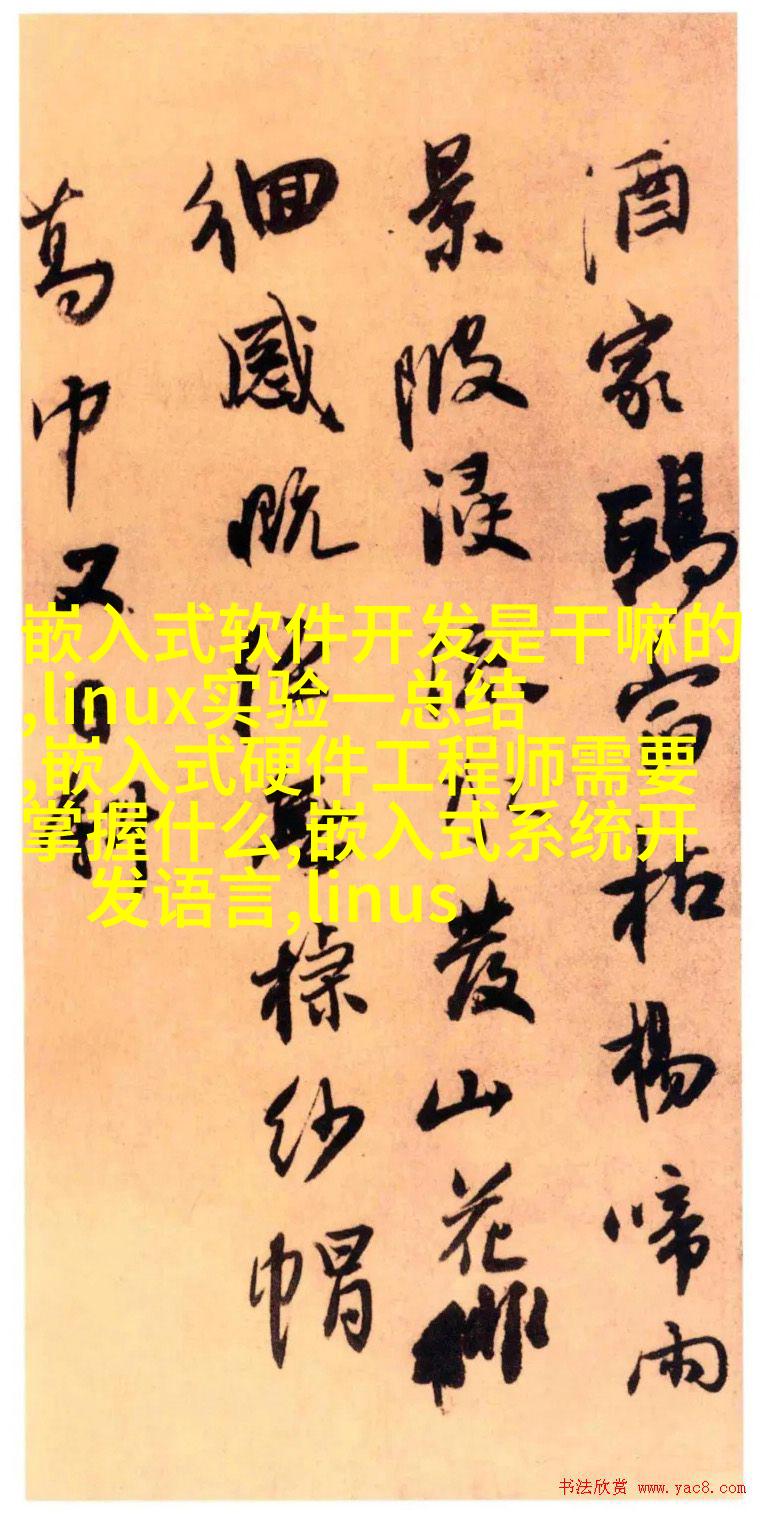 酒家鵶宿枯楊啼雨
景陂浸
水發山花排
徊感慨
標紗帽
葛巾又日斜
嵌入式软件开发是干嘛的
,linux实验一总结
,嵌入式硬件工程师需要
掌握什么,嵌入式系统开
发语言,linus
书法欣赏 www.yac8.com